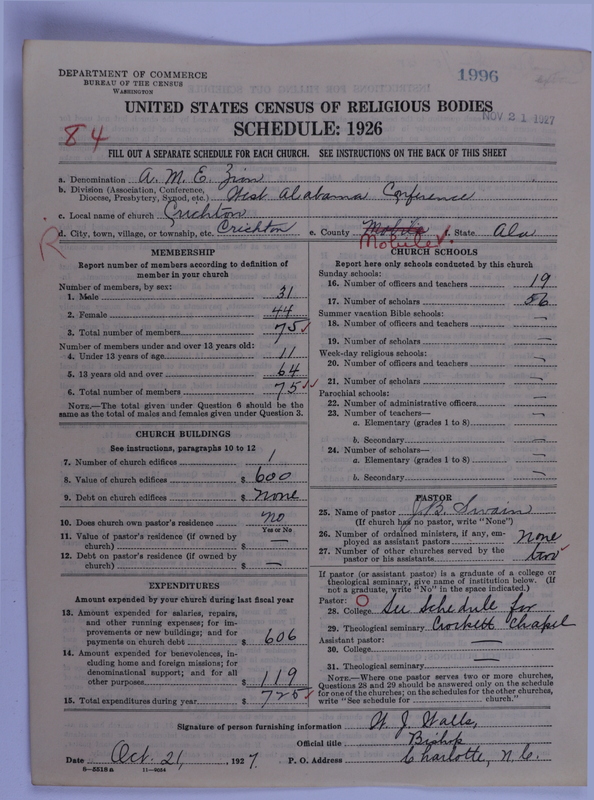 DEPARTMENT OF COMMERCE
BUREAU OF THE CENSUS
WASHINGTON
1996
NOV 21 1927
UNITED STATES CENSUS OF RELIGIOUS BODIES
SCHEDULE: 1926
84
FILL OUT A SEPARATE SCHEDULE FOR EACH CHURCH. SEE INSTRUCTIONS ON THE BACK OF THIS SHEET
a. Denomination A. M. E. Zion
b. Division (Association, Conference, Diocese, Presbytery, Synod, etc.) West Alabama Conference
c. Local name of church Crichton
d. City, town, village, or township, etc. Crichton e. County Mobile f. State Ala
R
Mobile
MEMBERSHIP
Report number of members according to definition of member in your church
Number of members, by sex:
1. Male 31
2. Female 44
3. Total number of members 75
Number of members under and over 13 years old:
4. Under 13 years of age 11
5. 13 years old and over 64
6. Total number of members 75
NOTE.—The total given under Question 6 should be the same as the total of males and females given under Question 3.
CHURCH BUILDINGS
See instructions, paragraphs 10 to 12
7. Number of church edifices 1
8. Value of church edifices $ 600
9. Debt on church edifices $ None
10. Does church own pastor's residence no
Yes or No
11. Value of pastor's residence (if owned by church) $ —
12. Debt on pastor's residence (if owned by church) $ —
EXPENDITURES
Amount expended by your church during last fiscal year
13. Amount expended for salaries, repairs, and other running expenses; for improvements or new buildings; and for payments on church debt $ 606
14. Amount expended for benevolences, including home and foreign missions; for denominational support; and for all other purposes $ 119
15. Total expenditures during year $ 725
CHURCH SCHOOLS
Report here only schools conducted by this church
Sunday schools:
16. Number of officers and teachers 19
17. Number of scholars 56
Summer vacation Bible schools:
18. Number of officers and teachers —
19. Number of scholars —
Week-day religious schools:
20. Number of officers and teachers —
21. Number of scholars —
Parochial schools:
22. Number of administrative officers —
23. Number of teachers—
a. Elementary (grades 1 to 8) —
b. Secondary —
24. Number of scholars—
a. Elementary (grades 1 to 8) —
b. Secondary —
PASTOR
25. Name of pastor J. B. Swain
(If church has no pastor, write "None")
26. Number of ordained ministers, if any, employed as assistant pastors None
27. Number of other churches served by the pastor or his assistants two
If pastor (or assistant pastor) is a graduate of a college or theological seminary, give name of institution below. (If not a graduate, write "No" in the space indicated.)
Pastor:
28. College See Schedule for
29. Theological seminary Crockett Chapel
Assistant pastor:
30. College —
31. Theological seminary —
NOTE.—Where one pastor serves two or more churches, Questions 28 and 29 should be answered only on the schedule for one of the churches; on the schedules for the other churches, write "See schedule for church."
Signature of person furnishing information W. J. Walls,
Official title Bishop
Date Oct. 21, 1927. P. O. Address Charlotte, N. C.
8—5518a 11—9034